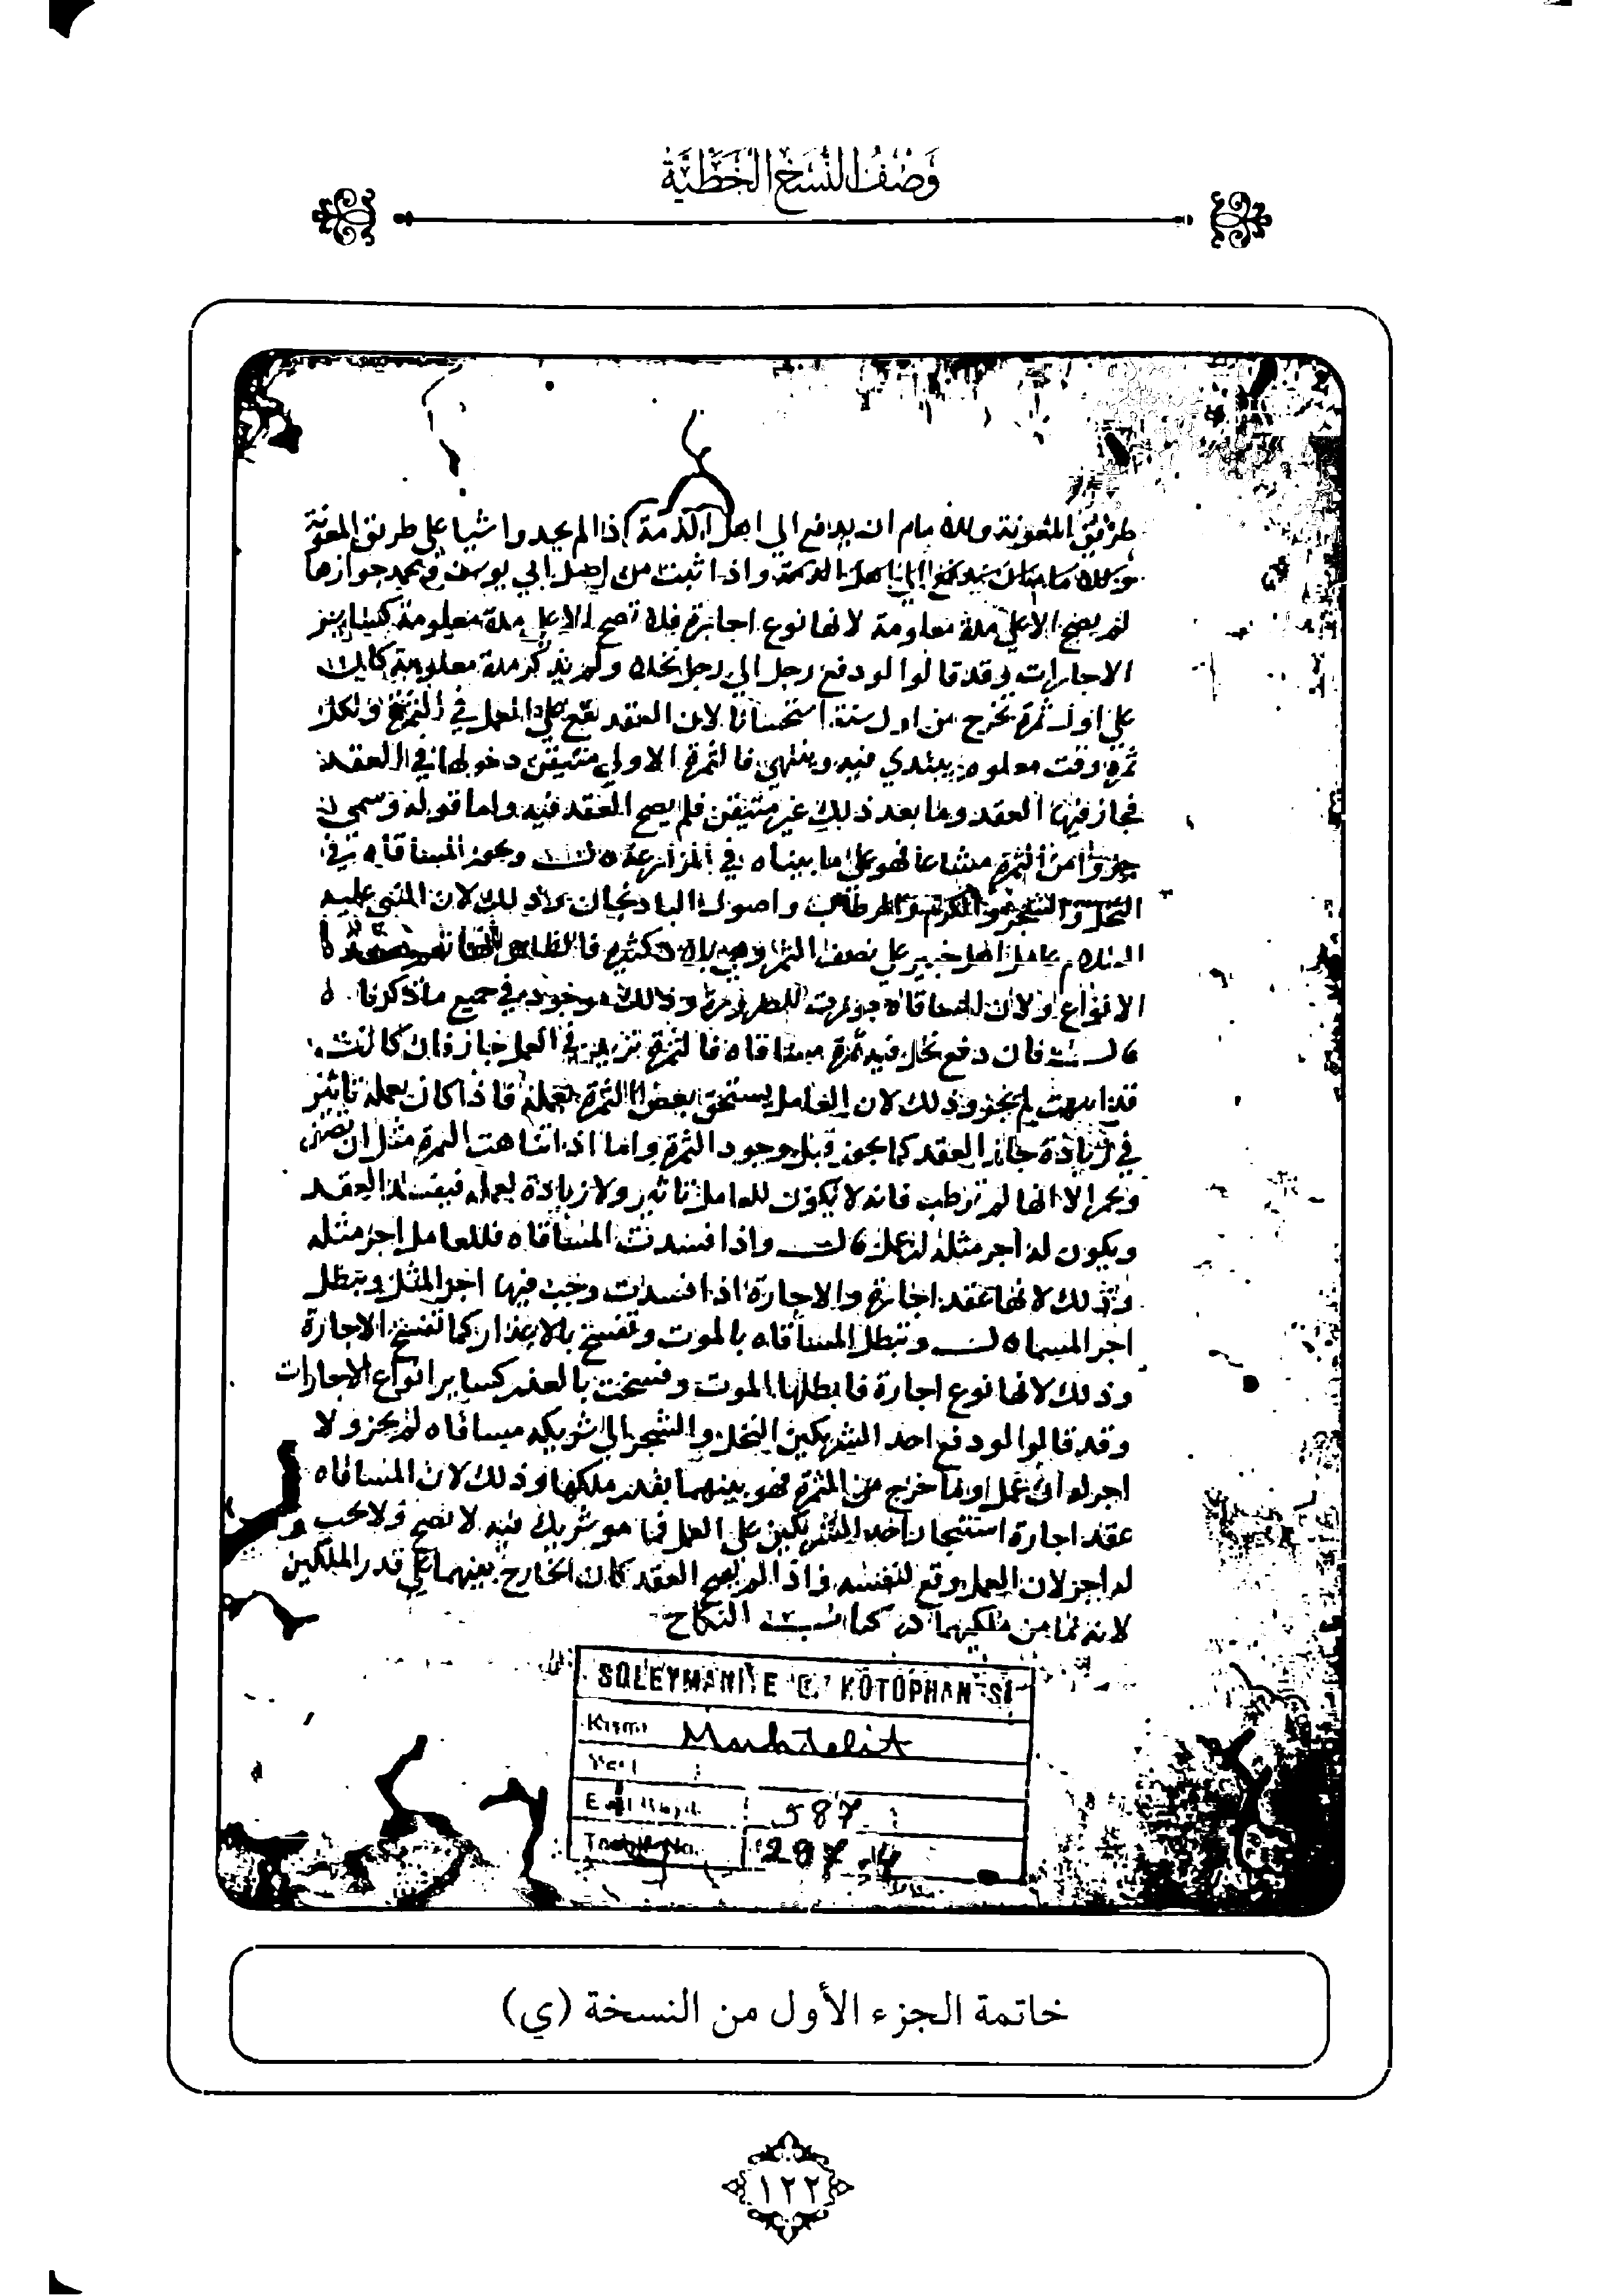 وصف النسخ الخطية
طريق المعونة وللامام ان يدفع الى اهل الذمة اذا لم يجدوا شيا على طريق المعونة
اهل الذمة واذا ثبت من اصل ابي يوسف ومحمد جوازها
لم يصح الا على مدة معلومة لانها نوع اجارة فلا تصح الا على مدة معلومة كساير
الاجارات وقد قالوا لو دفع رجل الى رجل نخلا ولم يذكر مدة معلومة كان ذلك
على اول ثمرة تخرج من اول سنة استحسانا لان العقد يقع على العمل في الثمرة ولكل
ثمرة وقت معلوم يبتدي فيه وينتهي فالثمرة الاولى متيقن دخولها في العقد
فجاز فيها العقد وما بعد ذلك غير متيقن فلم يصح العقد فيه واما قوله وسمى
جزوا من الثمرة مشاعا فهو على ما بيناه في المزارعة قال وتجوز المساقاة في
النخل والشجر والكرم والرطاب واصول الباذنجان وذلك لان النبي عليه
السلام عامل اهل خيبر على نصف الثمار وهي بلاد كثيرة فالظاهر
الانواع ولان المساقاة جوزت للضرورة وذلك موجود في جميع ما ذكرنا ه
قال فان دفع نخل فيه ثمرة مساقاة فالثمرة تزيد في العمل جاز وان كانت
قد انتهت لم يجز وذلك لان العامل يستحق بعض الثمرة بعمله فاذا كان بعمله تاثير
في زيادة جاز العقد كما يجوز قبل وجود الثمرة واما اذا تناهت الثمرة مثل ان تصفر
وتحمر الا انها لم ترطب فانه لا يكون للعامل تاثير ولا زيادة بعمله فيفسد العقد
ويكون له اجر مثله لعمله قال واذا فسدت المساقاة فللعامل اجر مثله
وذلك لانها عقد اجارة والاجارة اذا فسدت وجب فيها اجر المثل ويبطل
اجر المسما قال وتبطل المساقاة بالموت وتفسخ بالاعذار كما تفسخ الاجارة
وذلك لانها نوع اجارة فابطلها الموت وفسخت بالعذر كساير انواع الاجارات
وقد قالوا لو دفع احد الشريكين النخل والشجر الى شريكه مساقاة لم يجز ولا
اجر له ان عمل وما خرج من الثمرة فهو بينهما بقدر ملكها وذلك لان المساقاة
عقد اجارة استيجار احد الشريكين على العمل فيما هو شريك فيه لا تصح ولا يجب
له اجر لان العمل وقع لنفسه واذا لم يصح العقد كان الخارج بينهما على قدر الملكين
لانه نما من ملكيهما كتاب النكاح
SULEYMANIYE KÜTÜPHANESI
Kısmı
Yeni
587
Tasnif No. 297.4
خاتمة الجزء الأول من النسخة (ي)
١٢٢